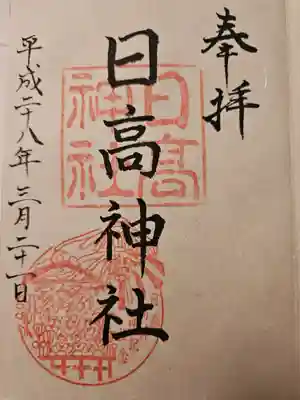 奉拝
日高神社
日高
神社
平成二十八年三月二十一日